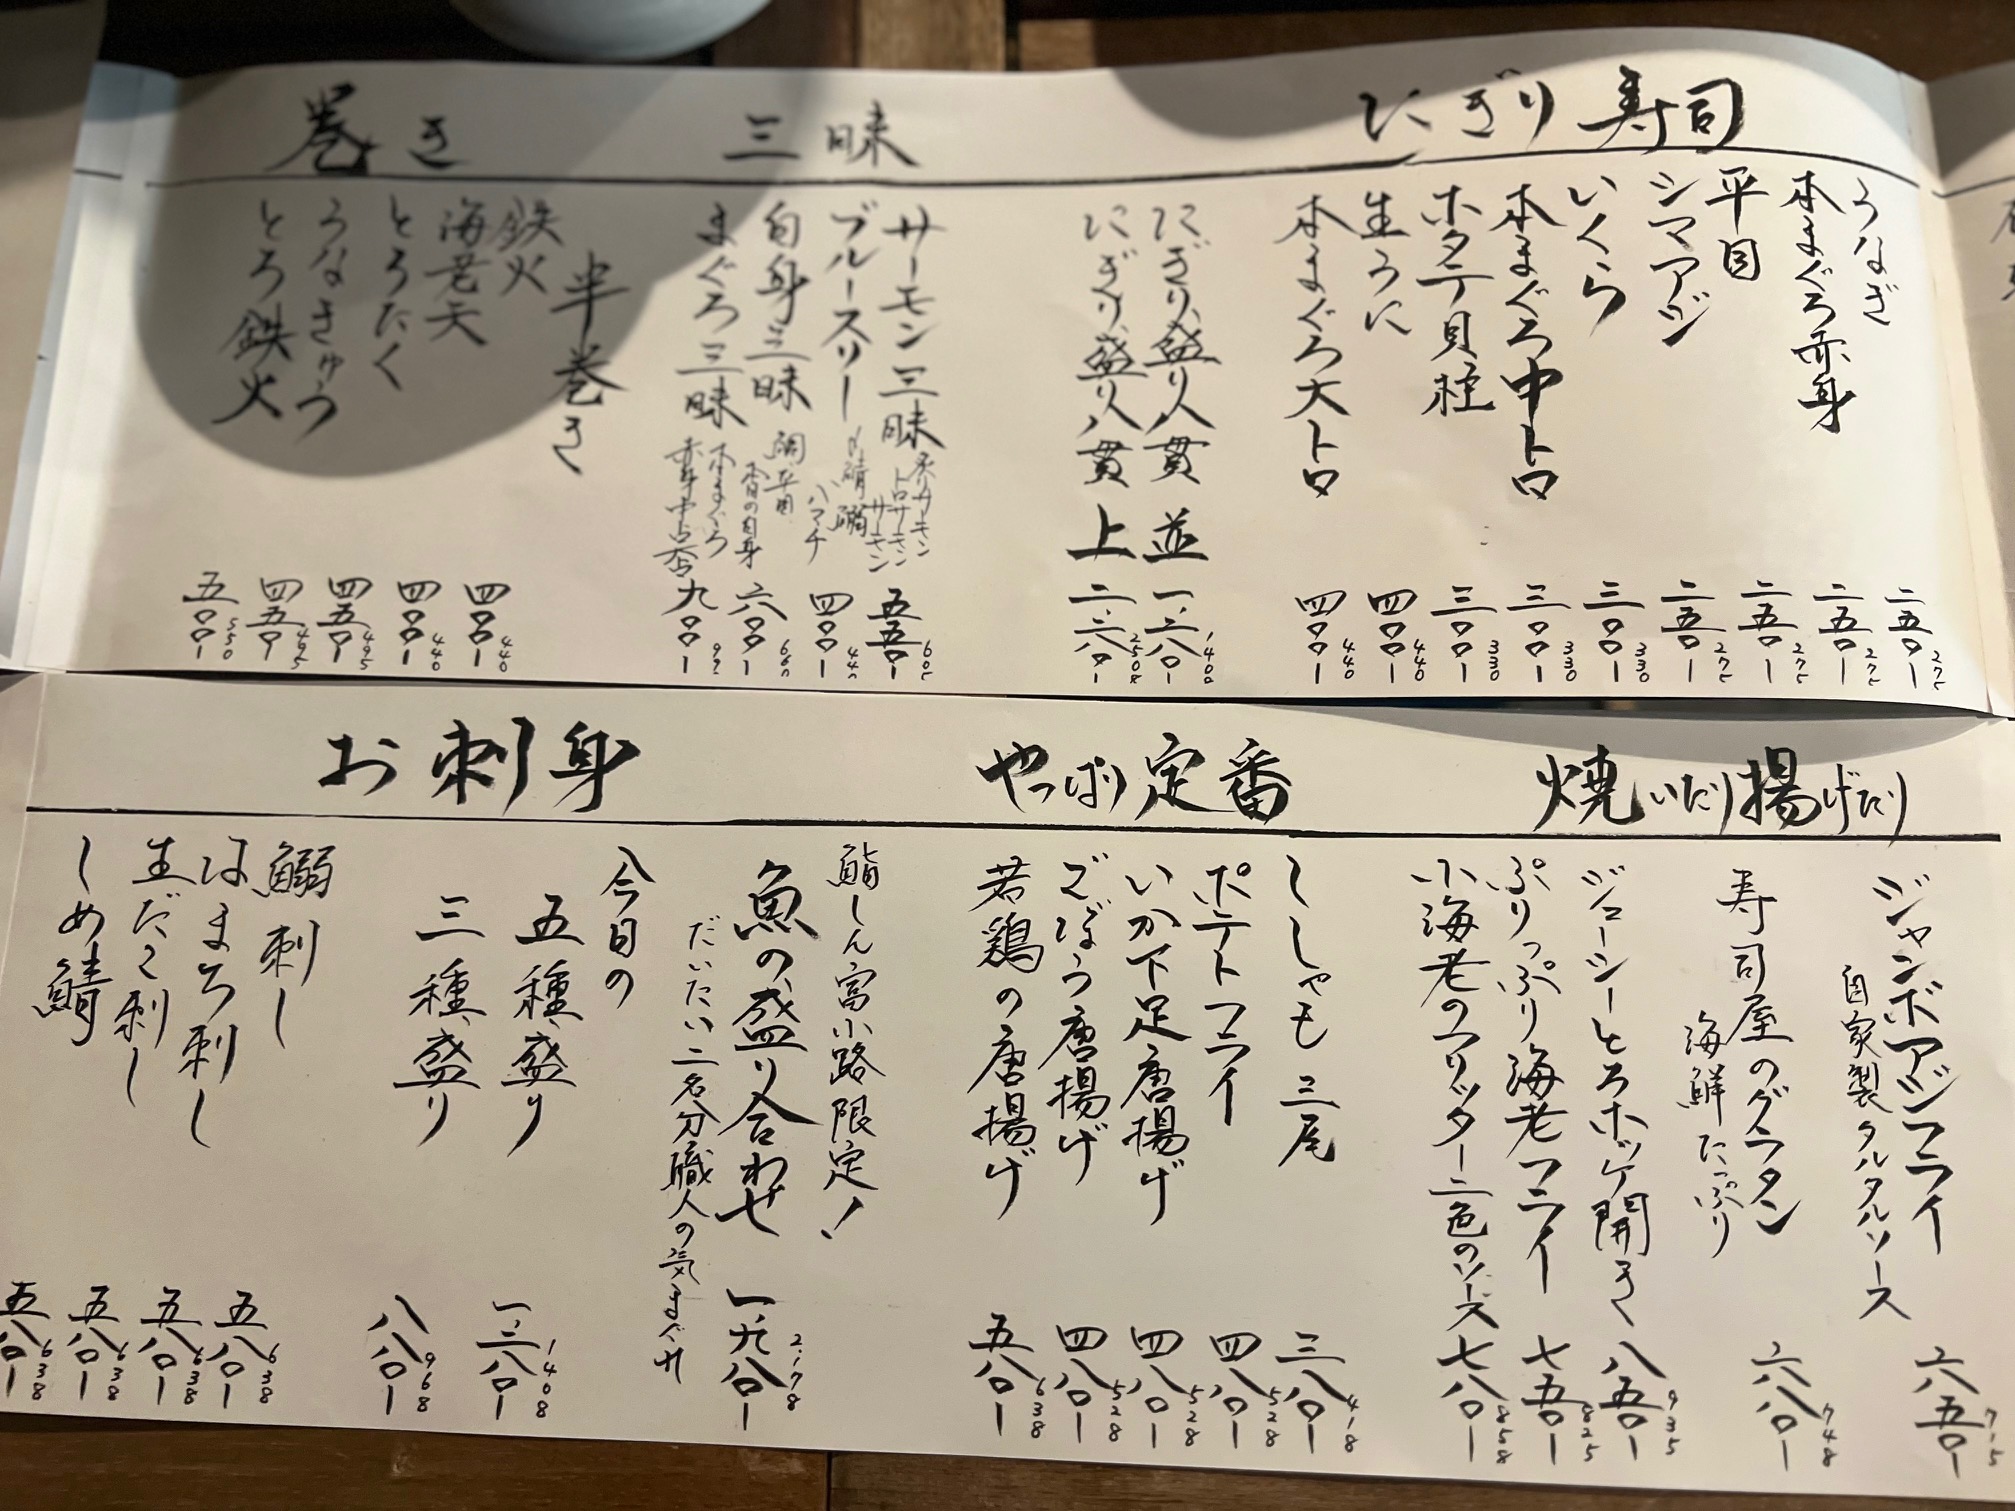 にぎり寿司
うなぎ 二五〇- 275
本まぐろ赤身 二五〇- 275
平目 二五〇- 275
シマアジ 二五〇- 275
いくら 三〇〇- 330
本まぐろ中トロ 三〇〇- 330
ホタテ貝柱 三〇〇- 330
生うに 四〇〇- 440
本まぐろ大トロ 四〇〇- 440
にぎり盛り八貫 並
にぎり盛り八貫 上
三昧
サーモン三昧 炙りサーモン トロサーモン サーモン 五五〇- 605
ブルースリー 〆鯖 鰯 ハマチ 四〇〇- 440
白身三昧 鯛 平目 本日の白身 六〇〇- 660
まぐろ三昧 本まぐろ 九〇〇-
巻き
半巻き
鉄火 四〇〇- 440
海老天 四〇〇- 440
とろたく 四五〇- 495
うなきゅう 四五〇- 495
とろ鉄火 五〇〇- 550
焼いたり揚げたり
ジャンボアジフライ
自家製タルタルソース 六五〇- 715
寿司屋のグラタン
海鮮たっぷり 六八〇- 748
ジューシーとろホッケ開き 八五〇- 935
ぷりっぷり海老フライ 七五〇- 825
小海老のフリッター二色のソース 七八〇- 858
やっぱり定番
ししゃも 三尾 三八〇- 418
ポテトフライ 四八〇- 528
いか下足唐揚げ 四八〇- 528
ごぼう唐揚げ 四八〇- 528
若鶏の唐揚げ 五八〇- 638
お刺身
鮨しん富小路限定!
魚の盛り合わせ 一、九八〇- 2,178
だいたい二名分職人の気まぐれ
今日の
五種盛り 一、二八〇- 1408
三種盛り 八八〇- 968
鰯刺し 五八〇- 638
はまち刺し 五八〇- 638
生だこ刺し 五八〇- 638
しめ鯖 五八〇- 638